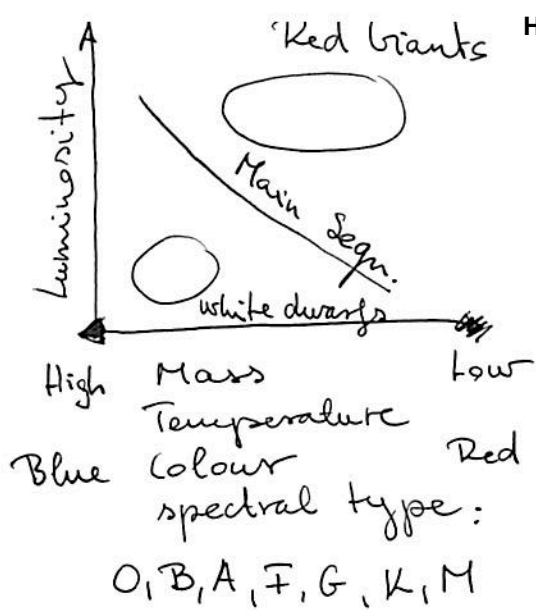 Red Giants
H
Luminosity
Main Sequ.
white dwarfs
High Mass Low
Temperature
Blue Colour Red
spectral type:
O, B, A, F, G, K, M